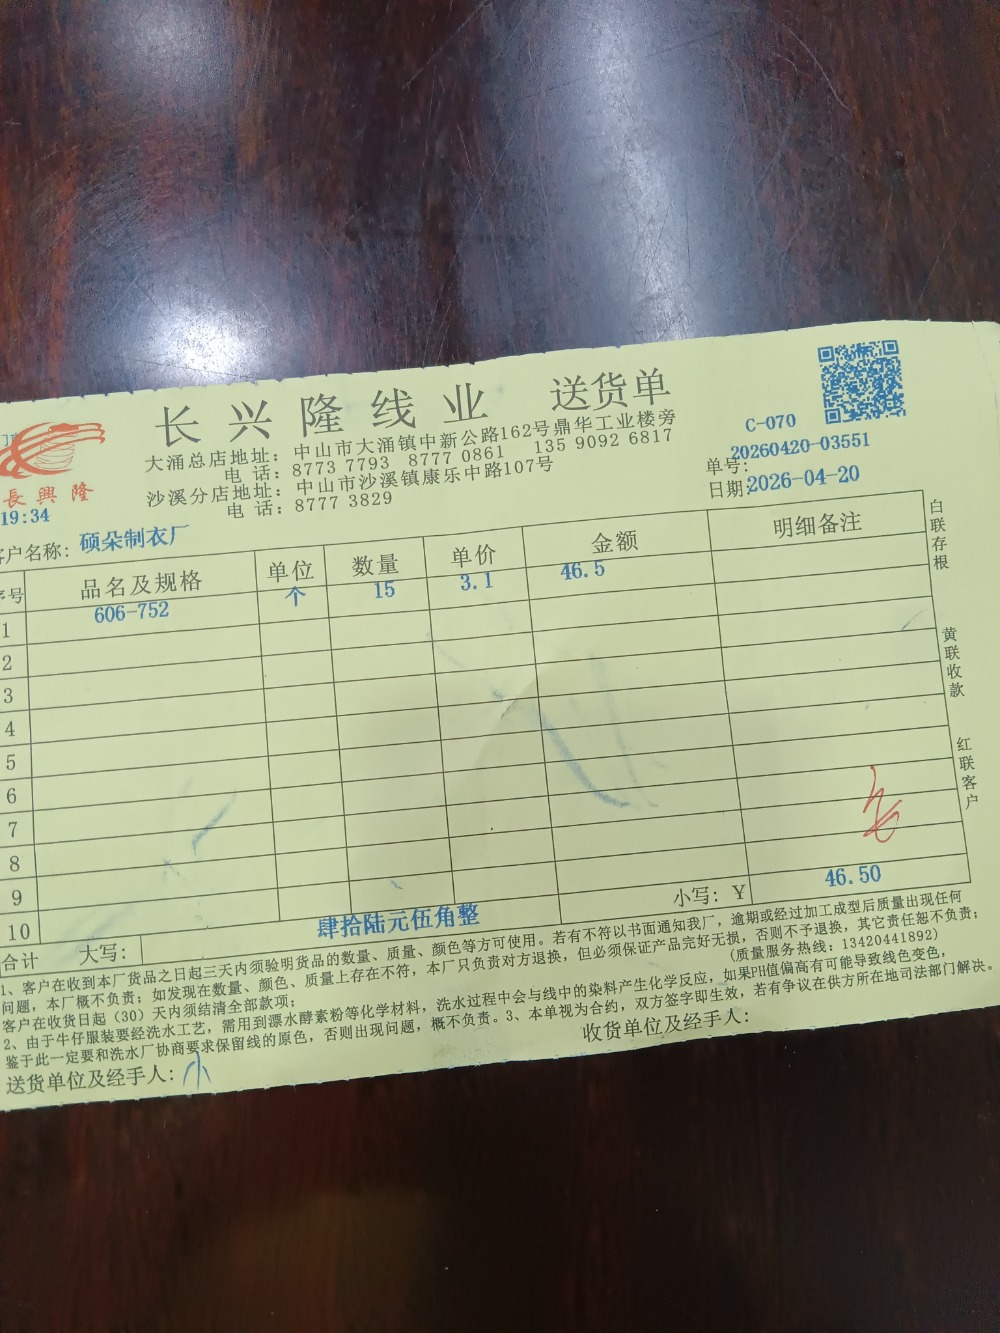 长兴隆线业 送货单
大涌总店地址：中山市大涌镇中新公路162号鼎华工业楼旁
电 话：8773 7793 8777 0861 135 9092 6817
沙溪分店地址：中山市沙溪镇康乐中路107号
电 话：8777 3829
C-070
单号：20260420-03551
日期：2026-04-20
長興隆
19:34
客户名称：硕朵制衣厂
序号 品名及规格 单位 数量 单价 金额 明细备注
1 606-752 个 15 3.1 46.5
2
3
4
5
6
7
8
9
10
合计 大写： 肆拾陆元伍角整 小写：￥ 46.50
白联存根
黄联收款
红联客户
1、客户在收到本厂货品之日起三天内须验明货品的数量、质量、颜色等方可使用。若有不符以书面通知我厂，逾期或经过加工成型后质量出现任何
问题，本厂概不负责；如发现在数量、颜色、质量上存在不符，本厂只负责对方退换，但必须保证产品完好无损，否则不予退换，其它责任恕不负责；
客户在收货日起（30）天内须结清全部款项； (质量服务热线：13420441892)
2、由于牛仔服装要经洗水工艺，需用到漂水酵素粉等化学材料，洗水过程中会与线中的染料产生化学反应，如果PH值偏高有可能导致线色变色，
鉴于此一定要和洗水厂协商要求保留线的原色，否则出现问题，概不负责。3、本单视为合约，双方签字即生效，若有争议在供方所在地司法部门解决。
送货单位及经手人：小 收货单位及经手人：